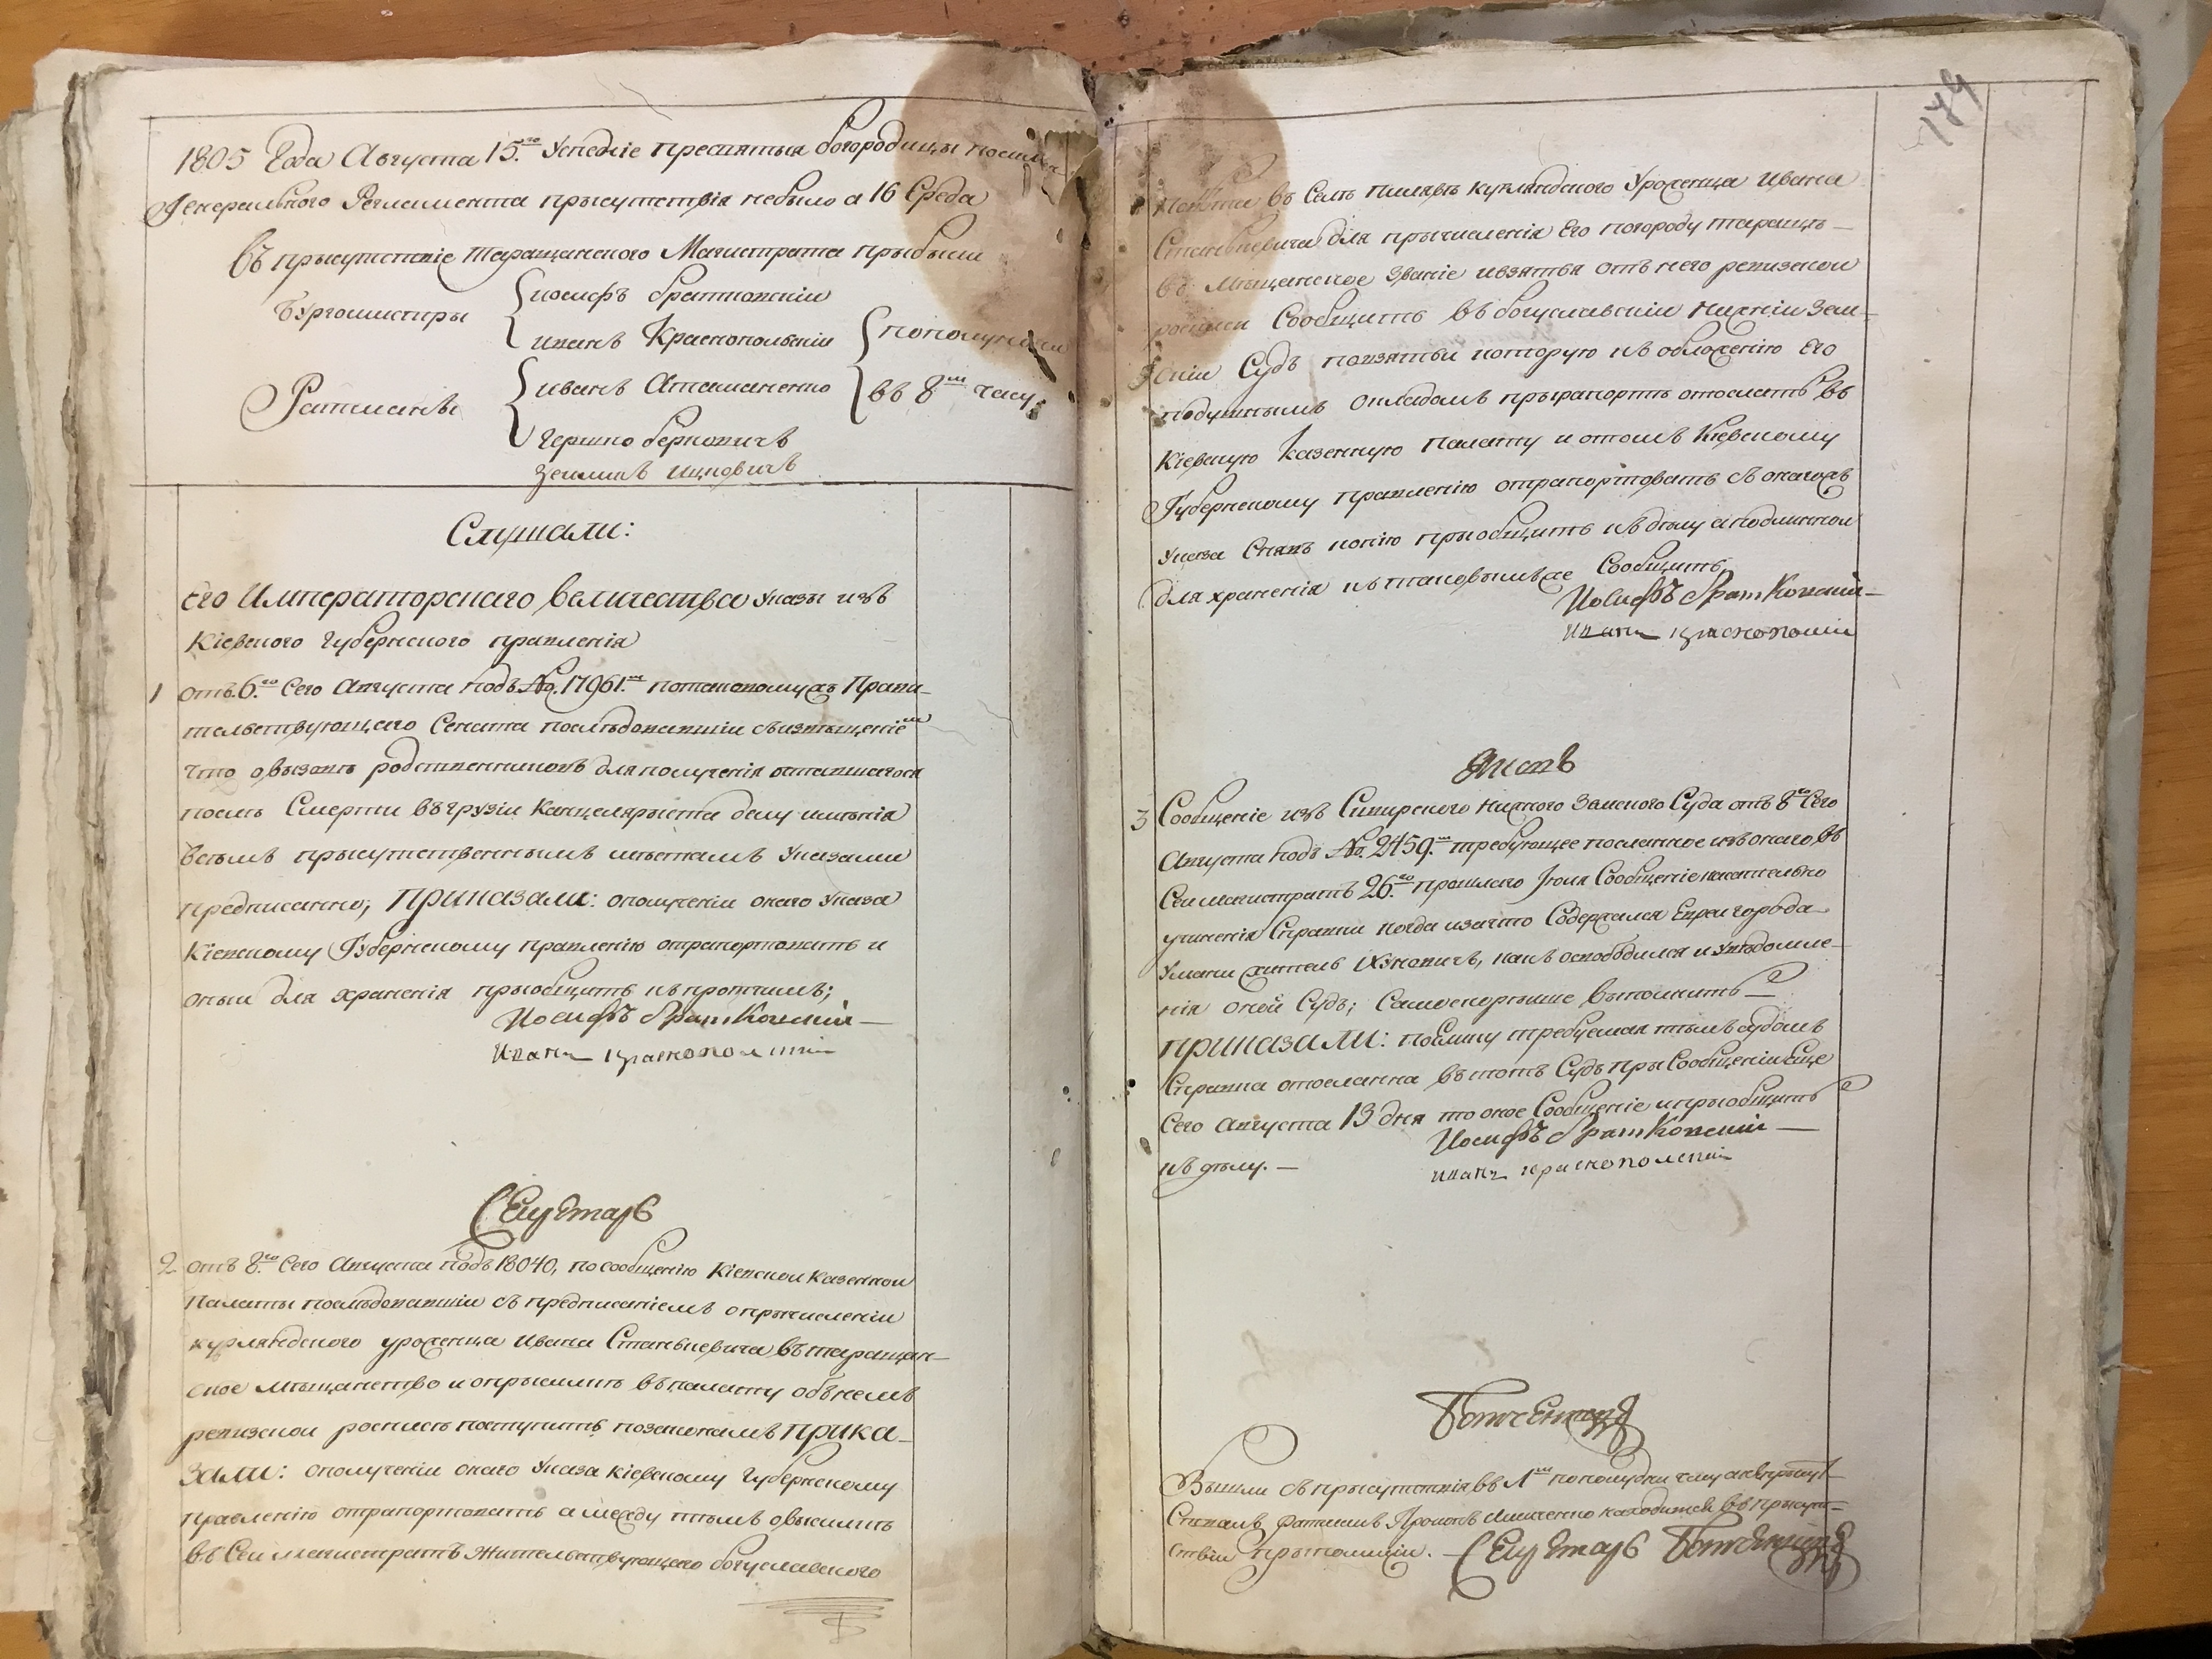 1805 Года Августа 15.го Успеніе пресвятыя богородицы посилѣ
Генерального Регламента прысутствія небыло а 16 Среда
въ прысутствіе таращанского Магистрата прыбыли
Бургомистры
иосифъ братковскіи
иванъ Краснопольскіи
пополуночи
Ратманы
иванъ Атаманенко
въ 8м часу
гершко берковичъ
зелманъ ицковичъ
Слушали:
Его Императорскаго величества указы изъ
Кіевского губернского правленія
1 отъ 6.го Сего Августа подъ №. 17961.м потаковомуже Прави-
телствующего Сената последовавшіи съизвещеніем
что овызовѣ родственниковъ для полученія оставшагося
послѣ Смерти въ грузіи Канцелярыста белу имѣнія
всѣмъ прысутственнымъ мѣстамъ указами
предписанно; приказали: ополученіи онаго указа
Кіевскому Губернскому правленію отрапортовать и
оный для храненія прыобщить къ протчимъ;
Иосифъ Братковскій
Иванъ краснополскій
Секретарь
2 отъ 8.го Сего Августа подъ 18040, посообщенію Кіевской казенной
палаты последовавшіи съ предписаніемъ опрычисленіи
курляндского уроженца Ивана Станкевича въ таращан-
ское мѣщанство и опрысилкѣ въ палату обънемъ
ревизской росписѣ поступить позаконамъ прика-
зали: ополученіи онаго указа кіевскому губернскому
правленію отрапортовать а между тѣмъ овысилкѣ
въ Сей магистратъ жителствующаго богуславского
174
въ Селѣ курляндского Уроженца Ивана
Станкевича для прычисленія Его погороду таращѣ
въ Мѣщанское званіе ивзятья отъ него ревизской
росписи Сообщить въ богуславскіи нижніи Зем-
скіи Судъ повзятьи которую къ обложенію Его
подушнымъ окладомъ прырапортѣ отослать въ
Кіевскую Казенную палату и отомъ Кіевскому
Губернскому правленію отрапортовать съ онагожъ
указа Снявъ копію прыобщить къ дѣлу аподлинной
для храненія ктаковымъже Сообщить
Иосифъ Братковскій
Иванъ краснополскій
3 Сообщеніе изъ Нижного Земского Суда отъ 8го Сего
Августа подъ №. 2459.м требующее посланное изъ онаго въ
Сей магистратъ 26.го прошлаго Июля Сообщеніе касательно
учиненія Справки когда изачто Содержался Еврей города
Умани житель Ихуновичъ, какъ освободился и Уведомле-
нія оной Судъ; Самоскорѣише выполнить
приказали: поелику требуемая тѣмъ судомъ
Справка отосланна въ тотъ Судъ при Сообщеніи Еще
Сего Августа 13 дня то оное Сообщеніе и прыобщить
къ дѣлу.
Иосифъ Братковскій
Иванъ краснополскій
Вышли съ прысутствія въ 1м пополудни часу
ратманъ находится въ прысут-
ствіи Секретарь